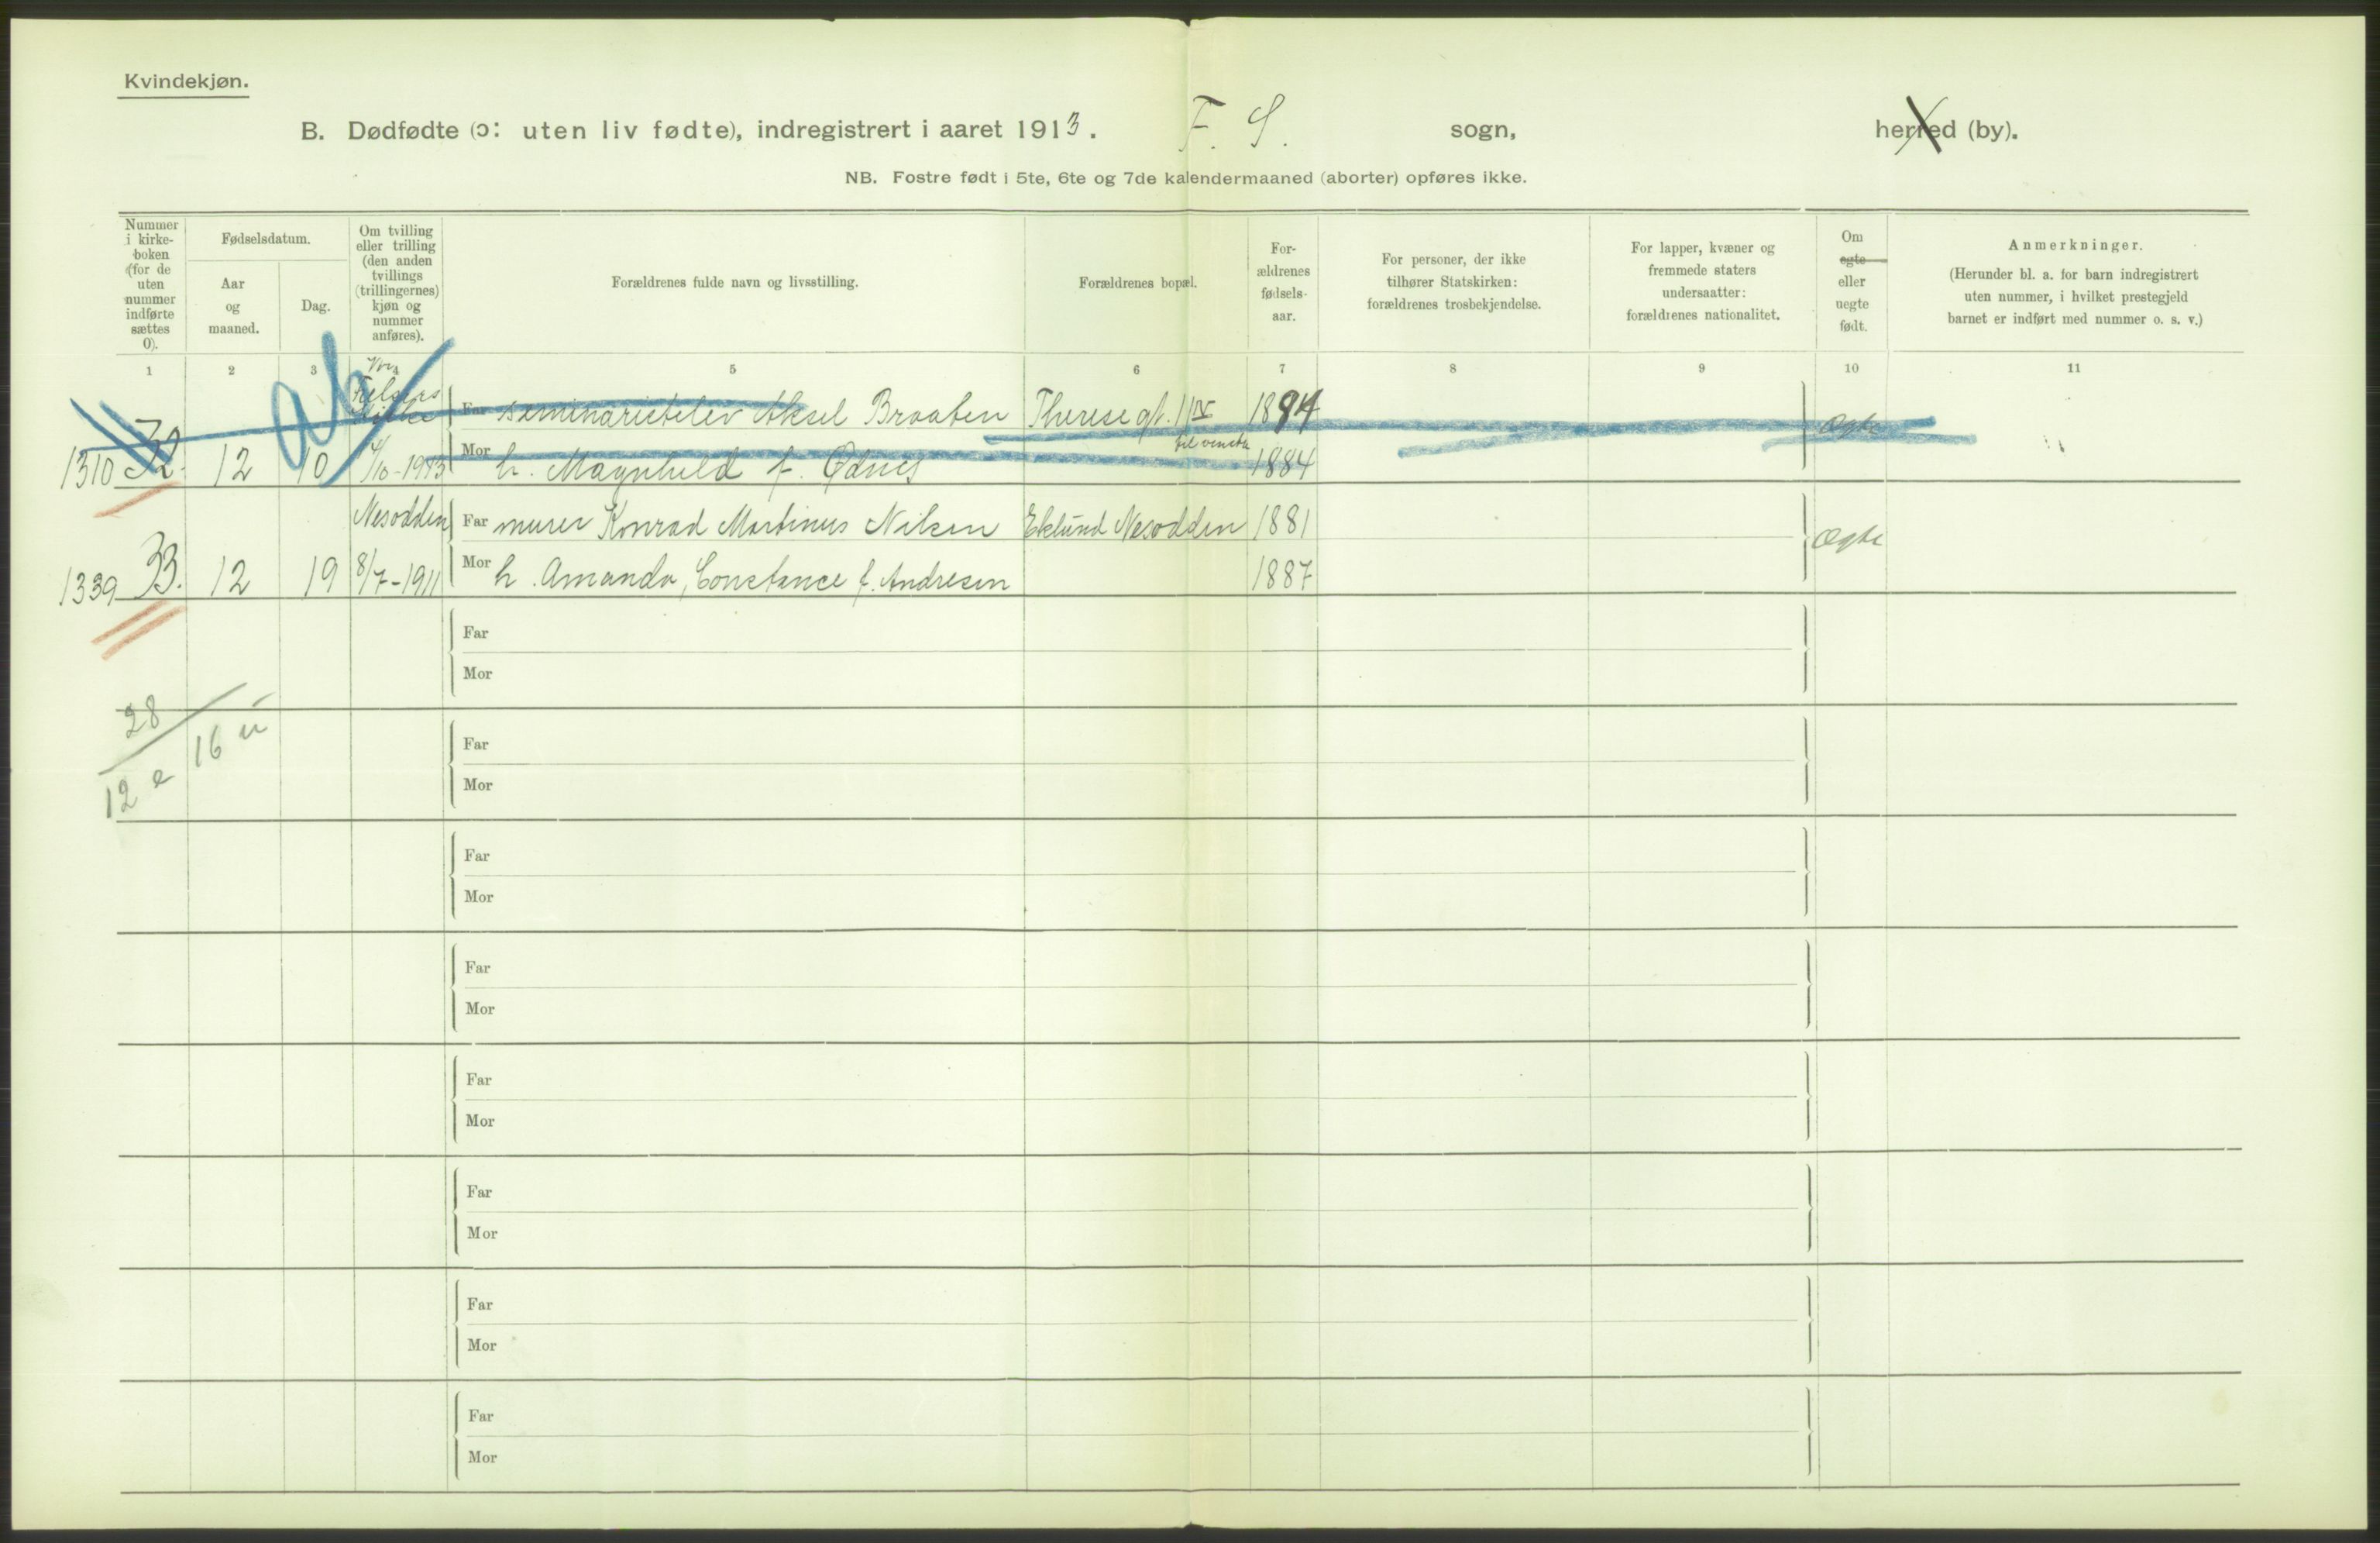 Kvindekjøn.
B. Dødfødte (ɔ: uten liv fødte), indregistrert i aaret 1913. F. S. sogn, herred (by).
NB. Fostre født i 5te, 6te og 7de kalendermaaned (aborter) opføres ikke.
Nummer i kirke-boken (for de uten nummer indførte sættes 0).
Fødselsdatum.
Aar og maaned.
Dag.
Om tvilling eller trilling (den anden tvillings (trillingernes) kjøn og nummer anføres).
Forældrenes fulde navn og livsstilling.
Forældrenes bopæl.
For-ældrenes fødsels-aar.
For personer, der ikke tilhører Statskirken: forældrenes trosbekjendelse.
For lapper, kvæner og fremmede staters undersaatter: forældrenes nationalitet.
Om egte eller uegte født.
Anmerkninger.
(Herunder bl. a. for barn indregistrert uten nummer, i hvilket prestegjeld barnet er indført med nummer o. s. v.)
1 2 3 5 6 7 8 9 10 11
Vor
Frelsers
Kirke
Far seminarietelev Aksel Braaten Therese gt. 11 IV 1894 Ægte
til venstre
1310 32. 12 10 4/10-1913 Mor h. Magnhild f. Ødnes 1884
Nesodden Far murer Konrad Martinus Nilsen Eklund Nesodden 1881 Ægte
1339 33. 12 19 8/7-1911 Mor h. Amanda, Constance f. Andresen 1887
Far
Mor
28
12 e 16 u
Far
Mor
Far
Mor
Far
Mor
Far
Mor
Far
Mor
Far
Mor
Far
Mor